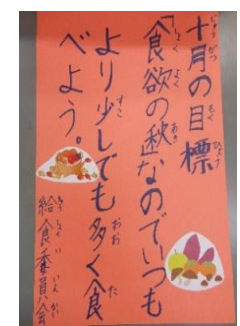 十月の目標
「食欲の秋なのでいつも
より少しでも多く食
べよう。
給食委員会